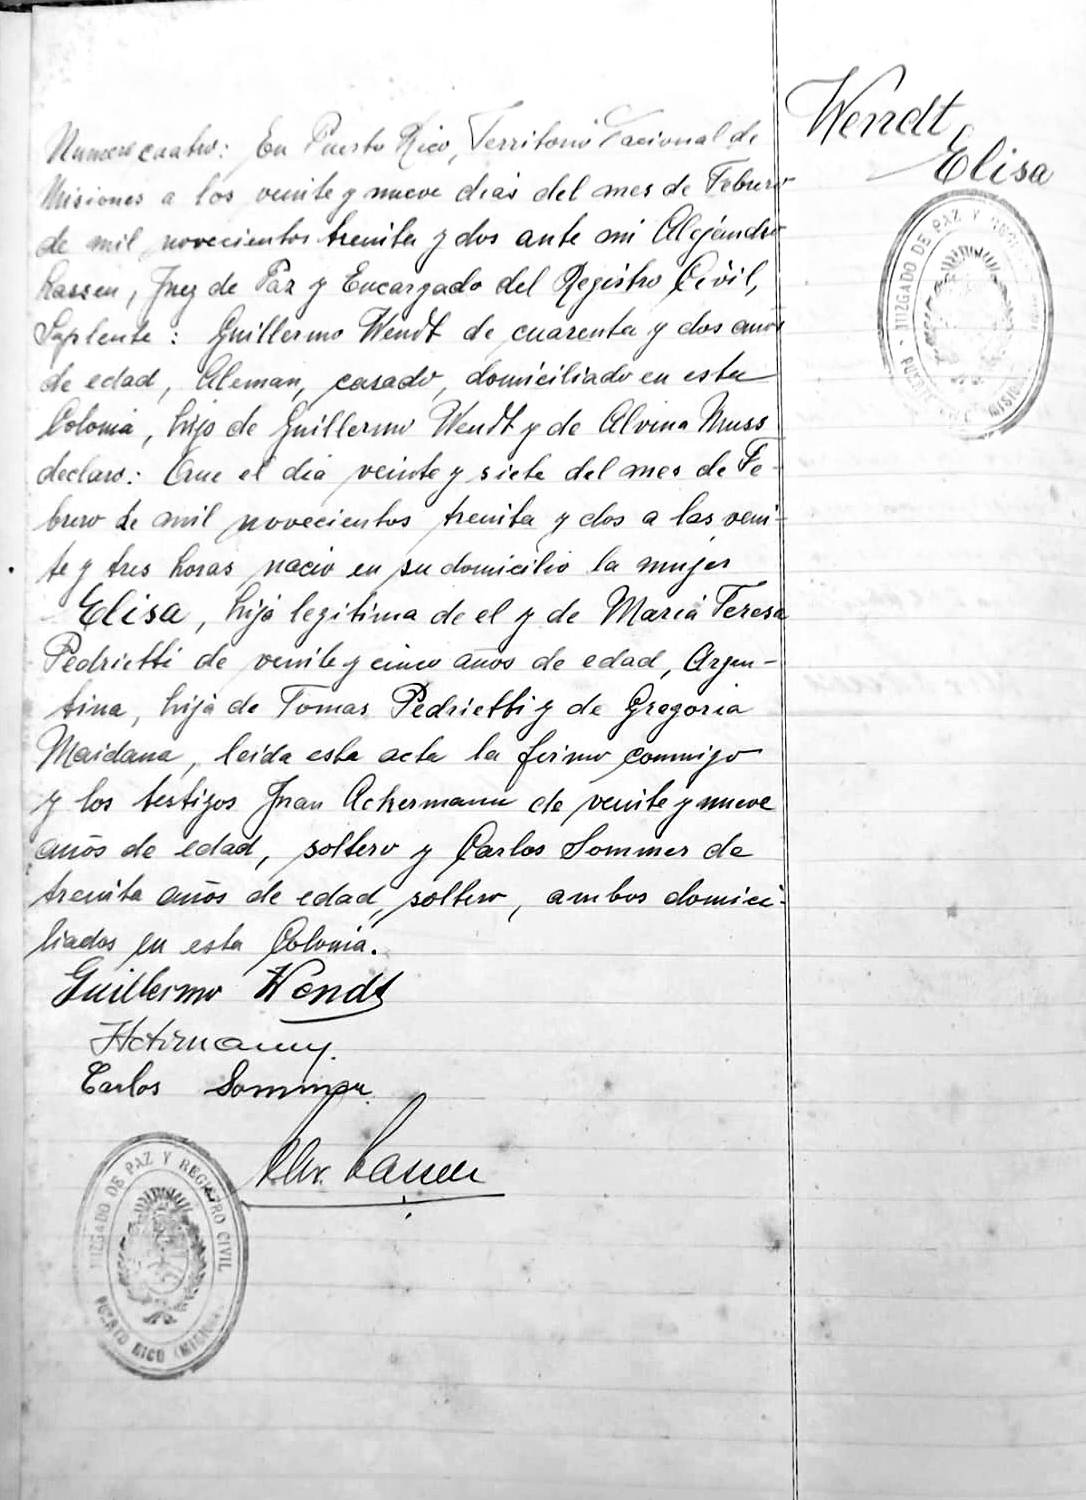 Wendt,
Elisa
Numero cuatro: En Puerto Rico, Territorio Nacional de
Misiones a los veinte y nueve dias del mes de Febrero
de mil novecientos treinta y dos ante mi Alejandro
Lassen, Juez de Paz y Encargado del Registro Civil,
Suplente: Guillermo Wendt de cuarenta y dos años
de edad, Aleman, casado, domiciliado en esta
Colonia, hijo de Guillermo Wendt y de Alvina Muss
declaro: Que el dia veinte y siete del mes de Fe-
brero de mil novecientos treinta y dos a las vein-
te y tres horas nacio en su domicilio la mujer
Elisa, hija legitima de el y de Maria Teresa
Pedrietti de veinte y cinco años de edad, Argen-
tina, hija de Tomas Pedrietti y de Gregoria
Maidana, leida esta acta la firmo conmigo
y los testigos Juan Ackermann de veinte y nueve
años de edad, soltero y Carlos Sommer de
treinta años de edad, soltero, ambos domici-
liados en esta Colonia.
Guillermo Wendt
Carlos Sommer
Alex. Lassen
JUZGADO DE PAZ Y REGISTRO CIVIL
PUERTO RICO (MISIONES)
JUZGADO DE PAZ Y